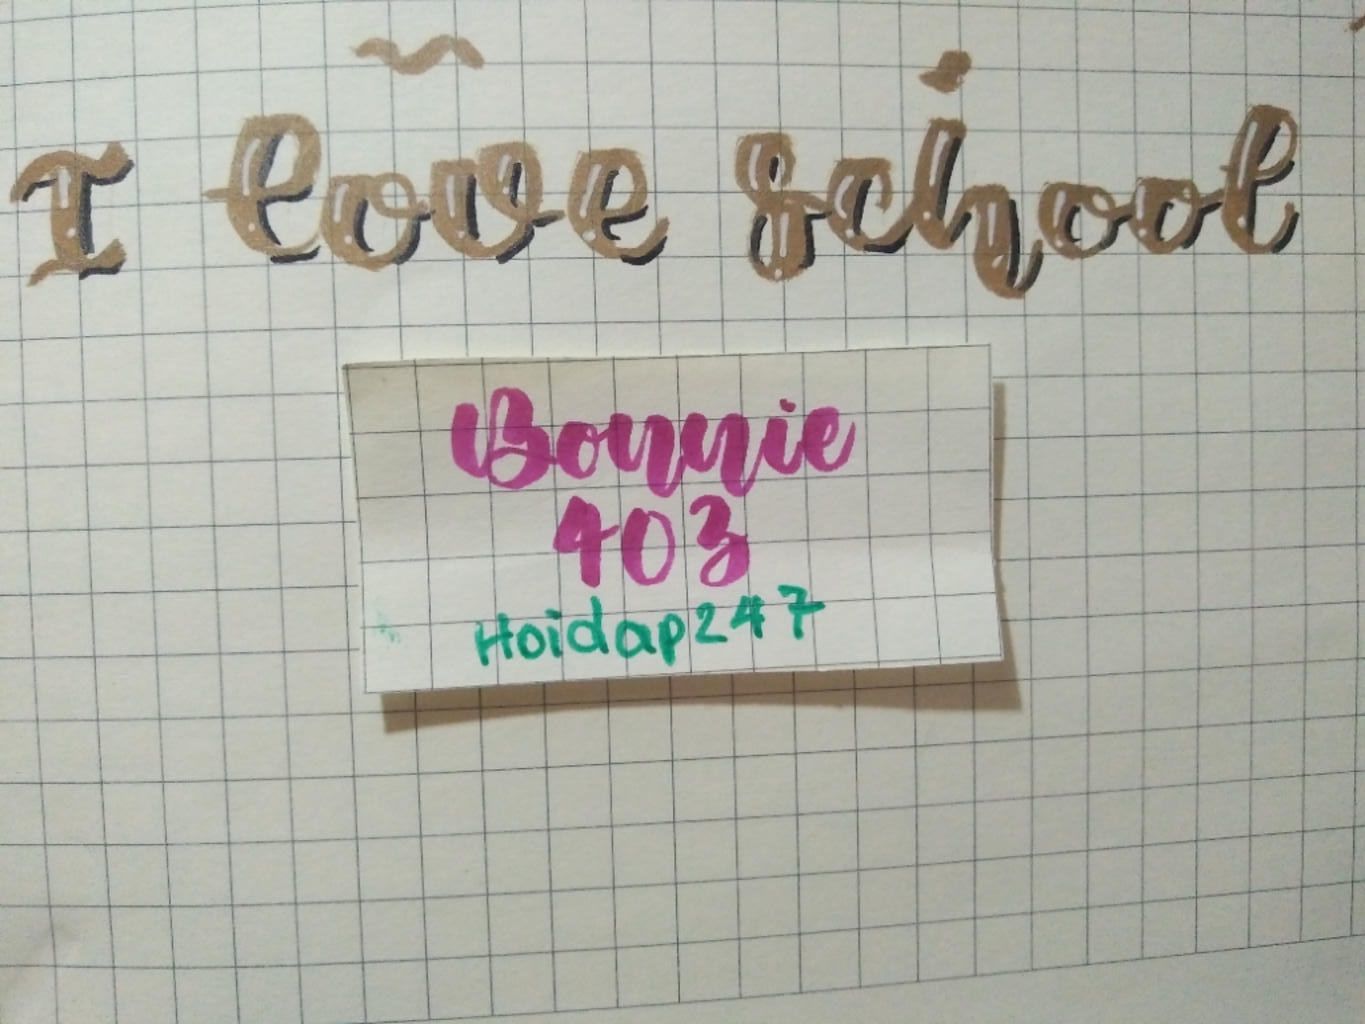 I love school
Bonnie
403
Hoidap247